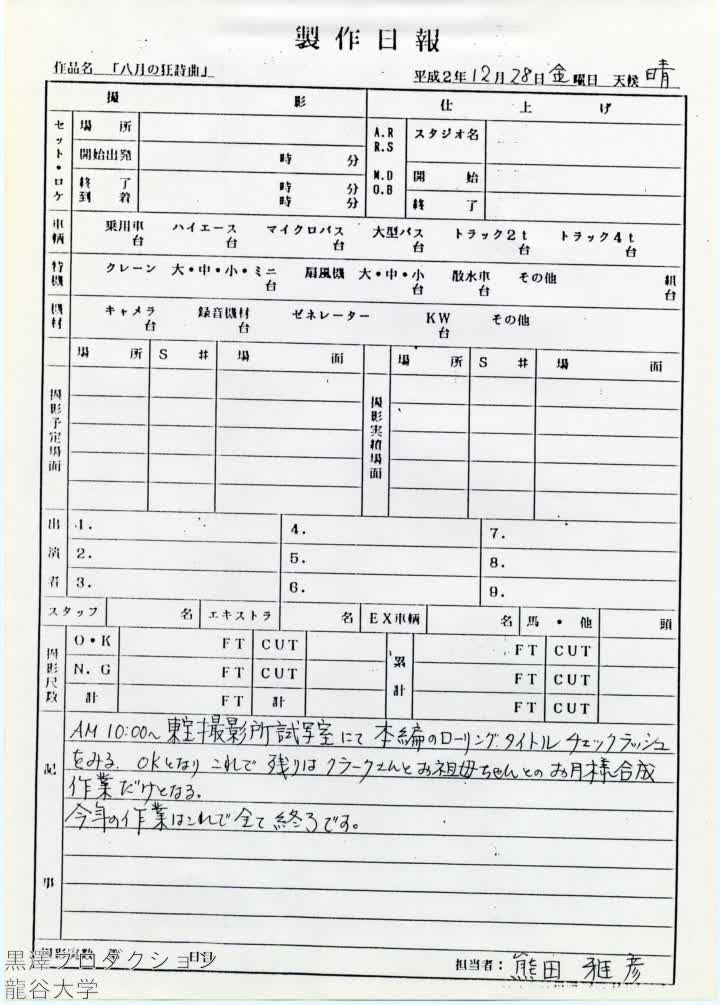 製作日報
作品名 「八月の狂詩曲」
平成2年12月28日金曜日 天候 晴
撮 影 仕 上 げ
セット・ロケ
場 所
開始出発 時 分
終 了 時 分
到 着 時 分
A.R
R.S
M.D
O.B
スタジオ名
開 始
終 了
車輌 乗用車 台 ハイエース 台 マイクロバス 台 大型バス 台 トラック2t 台 トラック4t 台
特機 クレーン 大・中・小・ミニ 台 扇風機 大・中・小 台 散水車 台 その他 組 台
機材 キャメラ 台 録音機材 台 ゼネレーター KW 台 その他
撮影予定場面 場 所 S # 場 面
撮影実績場面 場 所 S # 場 面
出演者
1. 4. 7.
2. 5. 8.
3. 6. 9.
スタッフ 名 エキストラ 名 EX車輌 名 馬・他 頭
撮影尺数
O・K FT CUT 累計 FT CUT
N.G FT CUT FT CUT
計 FT 計 FT CUT
記事
AM 10:00〜 東宝撮影所試写室にて 本編のローリングタイトル チェックラッシュ
をみる. OKとなり これで 残りは クラークさんとお祖母ちゃんとの お月様合成
作業だけとなる.
今年の作業はこれで全て終了です。
担当者: 熊田 雅彦
黒澤プロダクション
龍谷大学